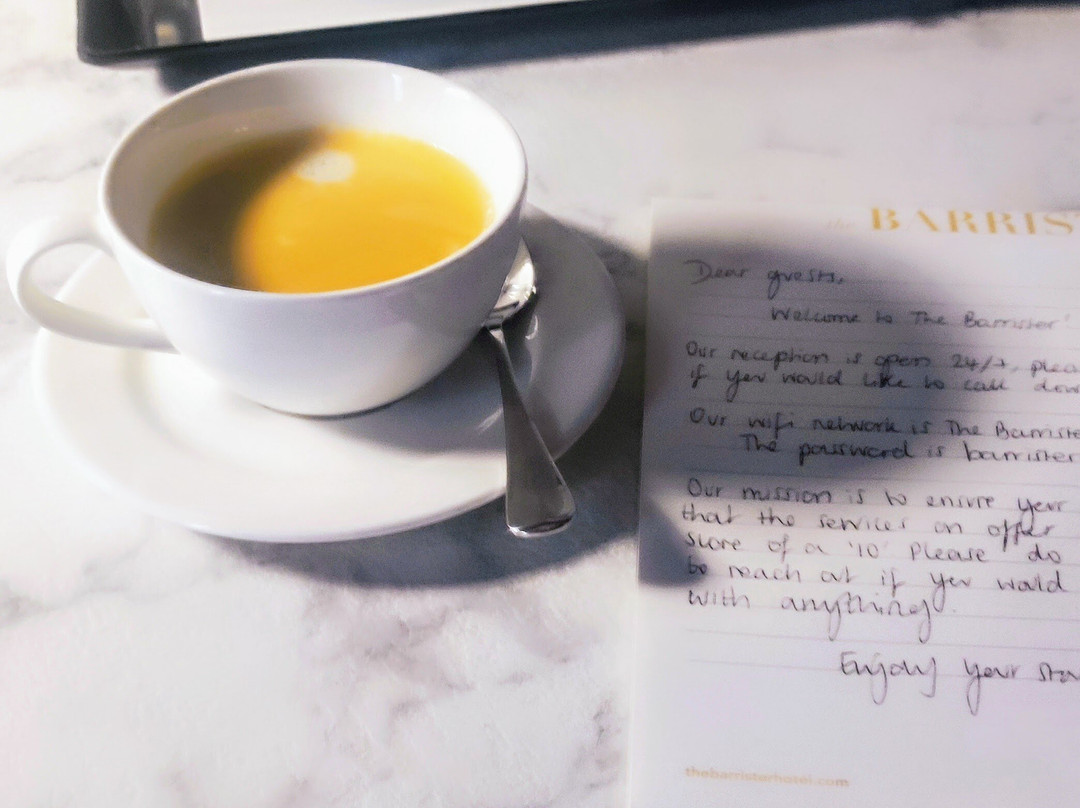 the BARRIS
Dear guests,
Welcome to The Barrister
Our reception is open 24/7, plea
if you would like to call dow
Our wifi network is The Barriste
The password is barrister
Our mission is to ensure your
that the services on offer
score of a '10' Please do
to reach out if you would
with anything.
Enjoy your sta
thebarristerhotel.com